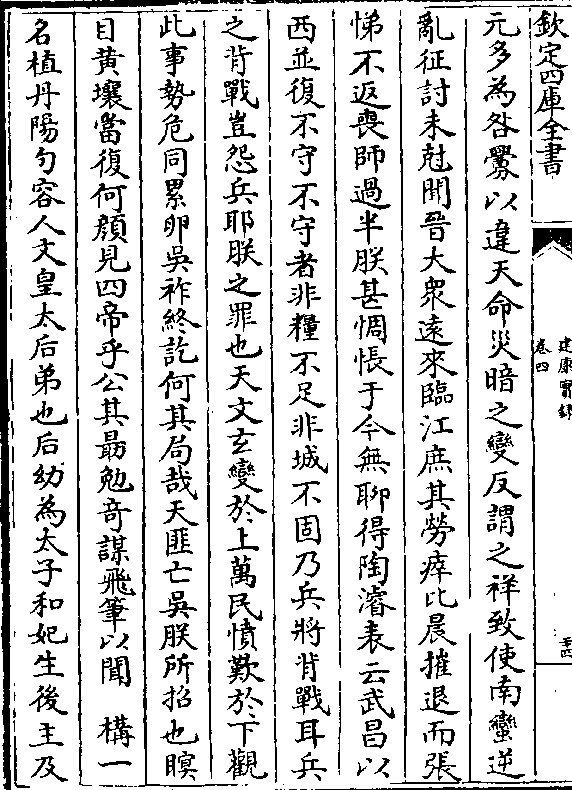 欽定四庫全書
建康實錄
卷四
三十四
元多為咎釁以違天命災暗之變反謂之祥致使南蠻逆
亂征討未尅聞晉大衆遠來臨江庶其勞瘁比晨摧退而張
悌不返喪師過半朕甚惆悵于今無聊得陶濬表云武昌以
西並復不守不守者非糧不足非城不固乃兵將背戰耳兵
之背戰豈怨兵耶朕之罪也天文玄變於上萬民憤歎於下觀
此事勢危同累卵吳祚終訖何其局哉天匪亡吳朕所招也瞑
目黃壤當復何顔見四帝乎公其勗勉竒謀飛筆以聞　構一
名植丹陽句容人文皇太后弟也后幼為太子和妃生後主及